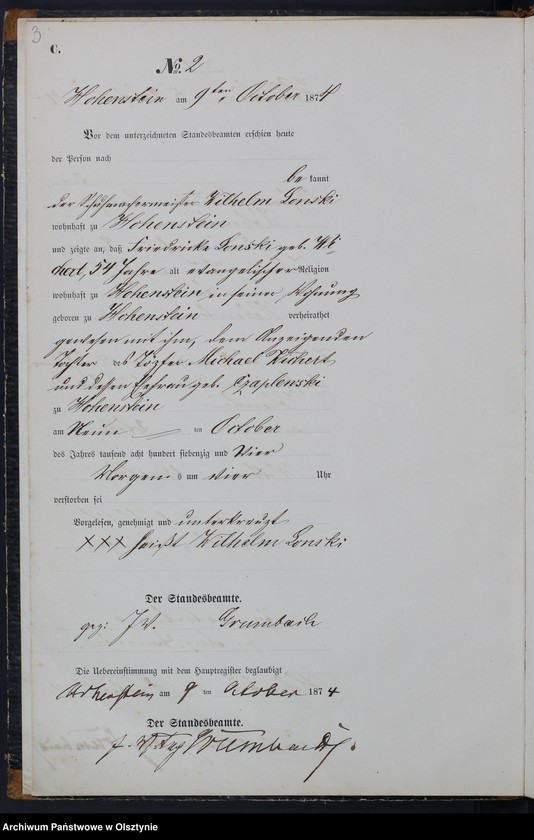 3
C.
No. 2
Hohenstein am 9ten October 1874
Vor dem unterzeichneten Standesbeamten erschien heute
der Person nach
be kannt
der Schuhmachermeister Wilhelm Lonski
wohnhaft zu Hohenstein
und zeigte an, daß Friedricke Lonski geb. Wi-
chert, 54 Jahre alt evangelischer Religion
wohnhaft zu Hohenstein in seiner Wohnung
geboren zu Hohenstein verheirathet
gewesen mit ihm, dem Anzeigenden
Tochter des Töpfer Michael Wichert
und dessen Ehefrau geb. Czaplenski
zu Hohenstein
am Neun ten October
des Jahres tausend acht hundert siebenzig und Vier
Morgens um vier Uhr
verstorben sei
Vorgelesen, genehmigt und unterkreuzt
XXX heißt Wilhelm Lonski
Der Standesbeamte.
gez: Grumbach
Die Uebereinstimmung mit dem Hauptregister beglaubigt
Hohenstein am 9 ten October 1874
Der Standesbeamte.
Grumbach
Archiwum Państwowe w Olsztynie